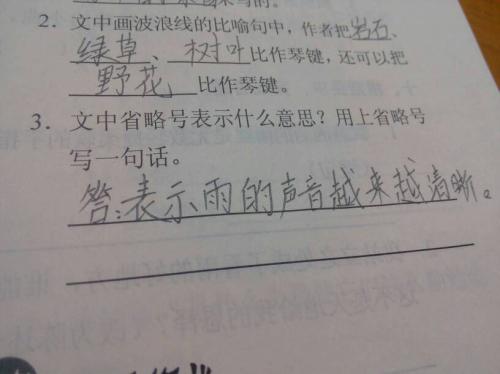 2. 文中画波浪线的比喻句中，作者把岩石、
绿草、树叶比作琴键，还可以把
野花比作琴键。
3. 文中省略号表示什么意思？用上省略号
写一句话。
答：表示雨的声音越来越清晰。